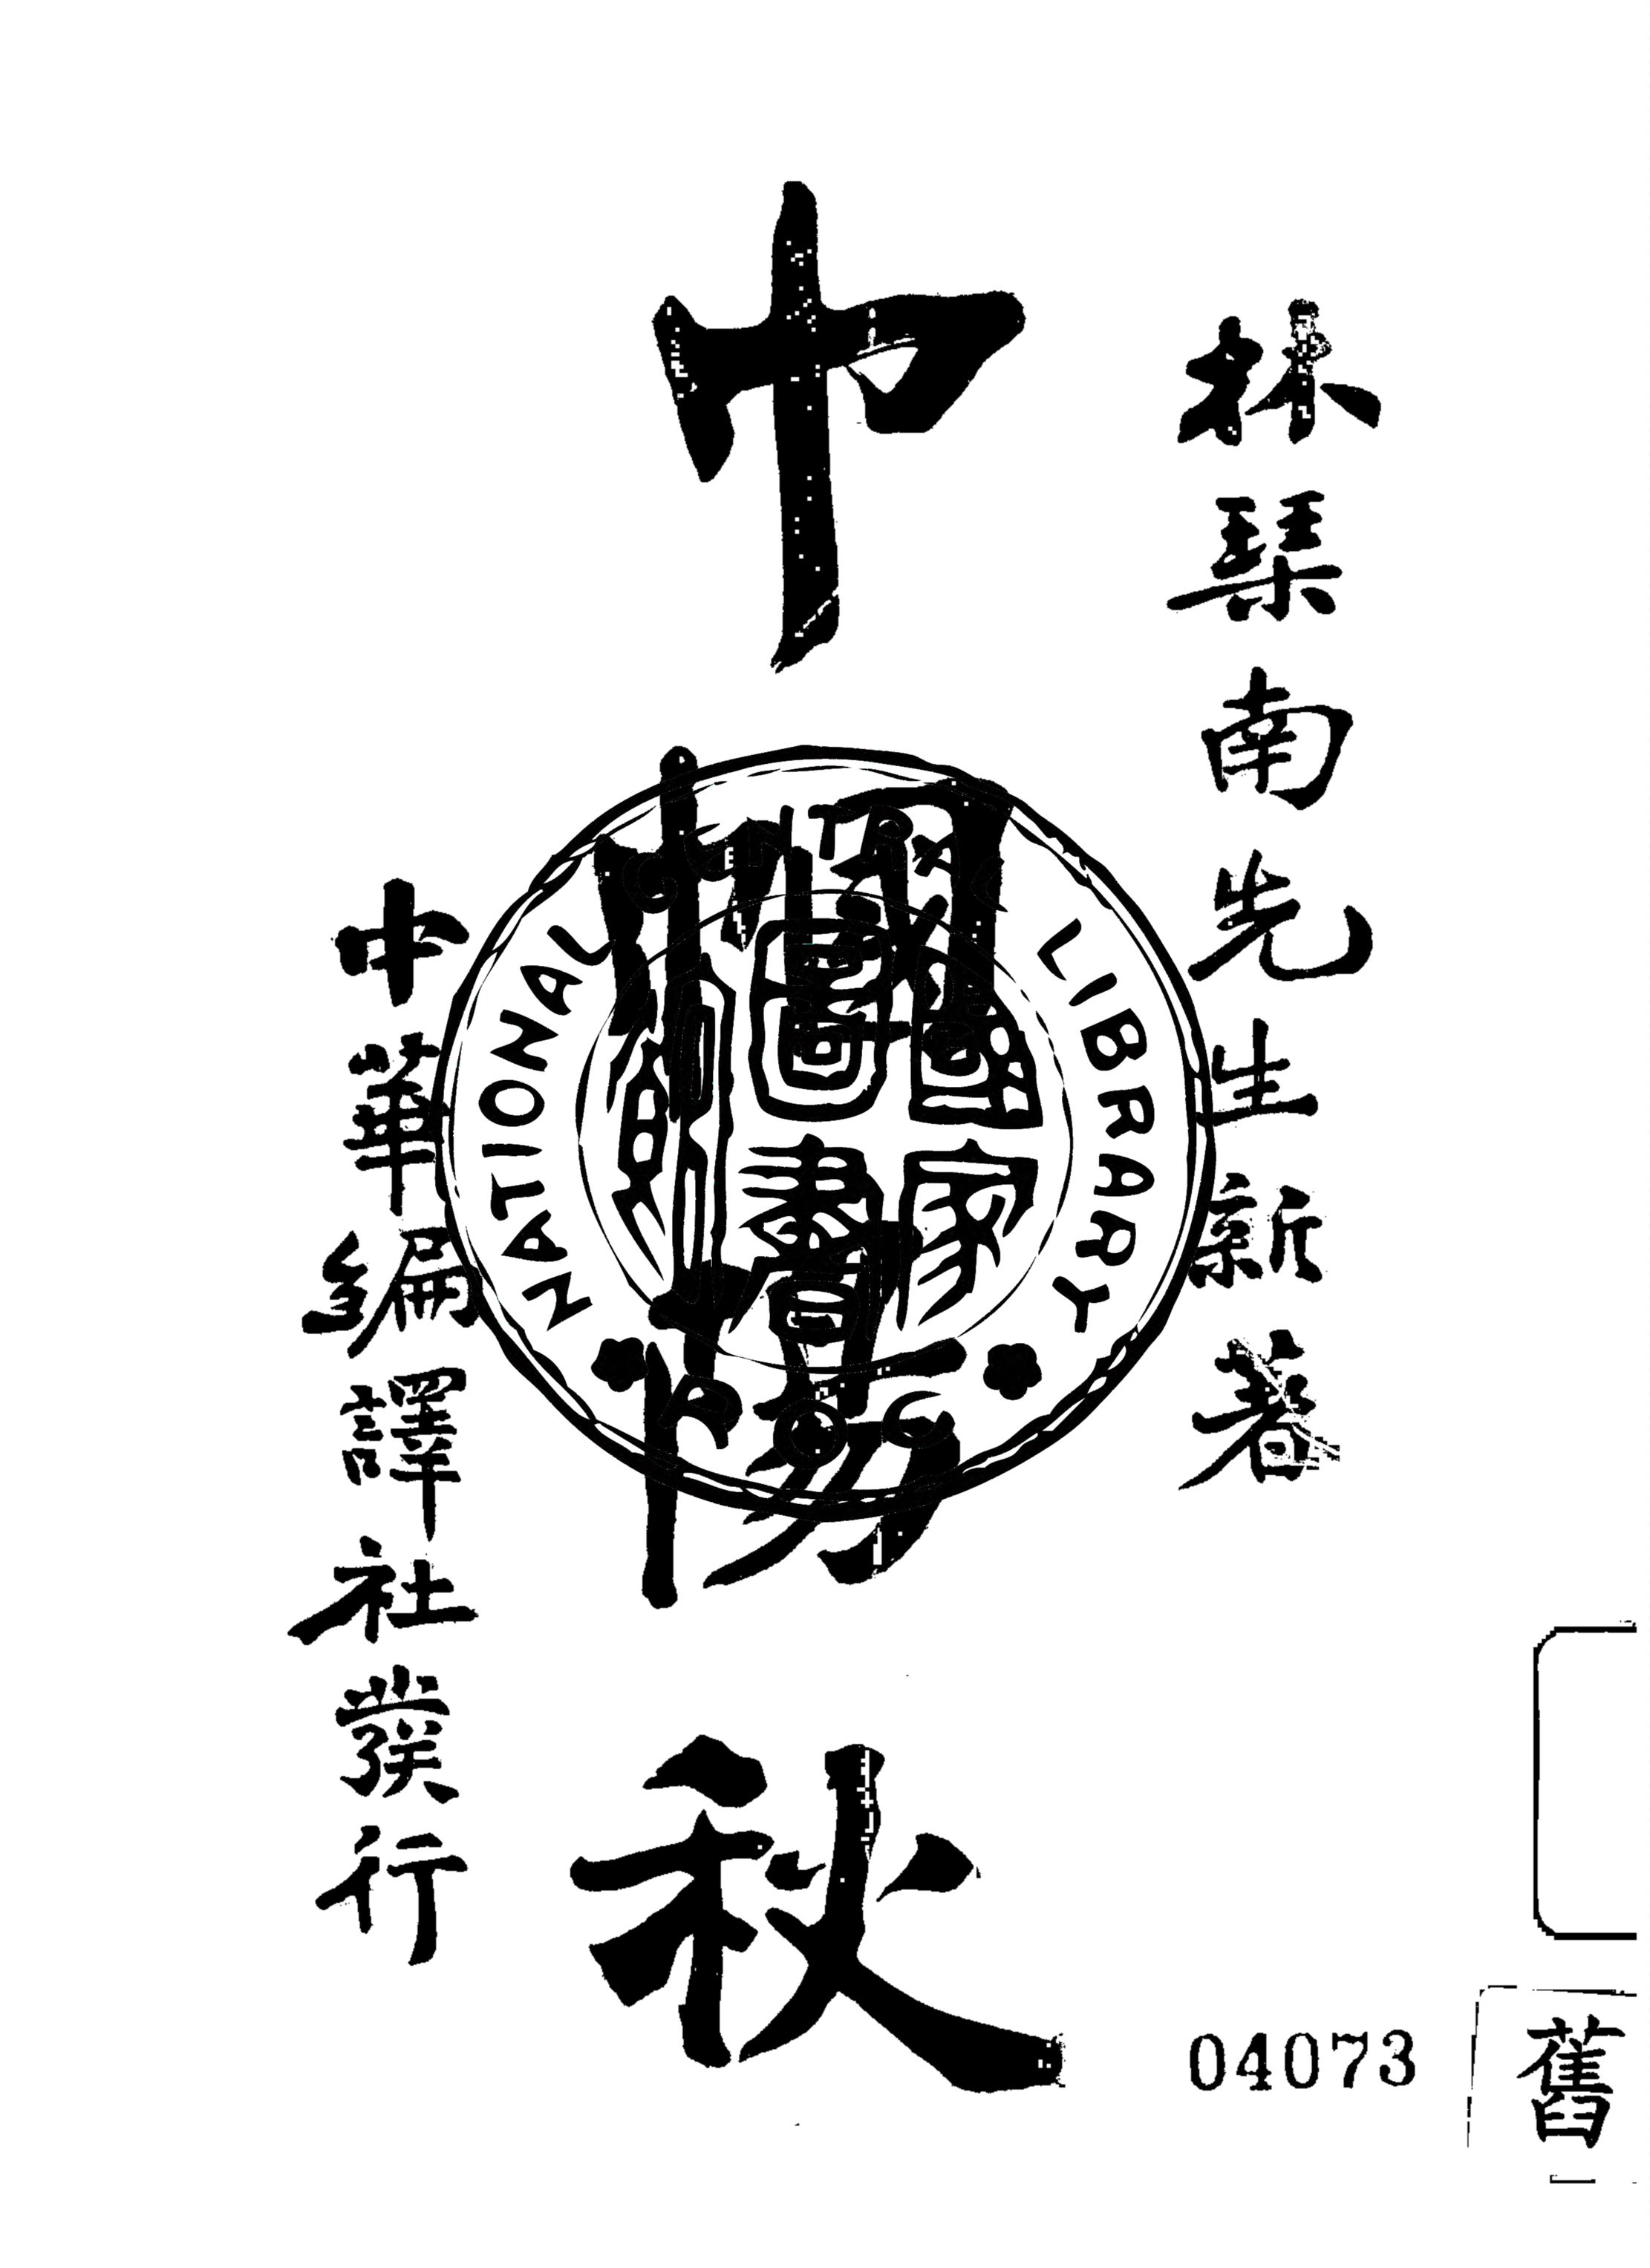 林琴南先生新著
巾幗陽秋
中華編譯社發行
NATIONAL CENTRAL LIBRARY
ROC
國家
圖書
館
04073
舊